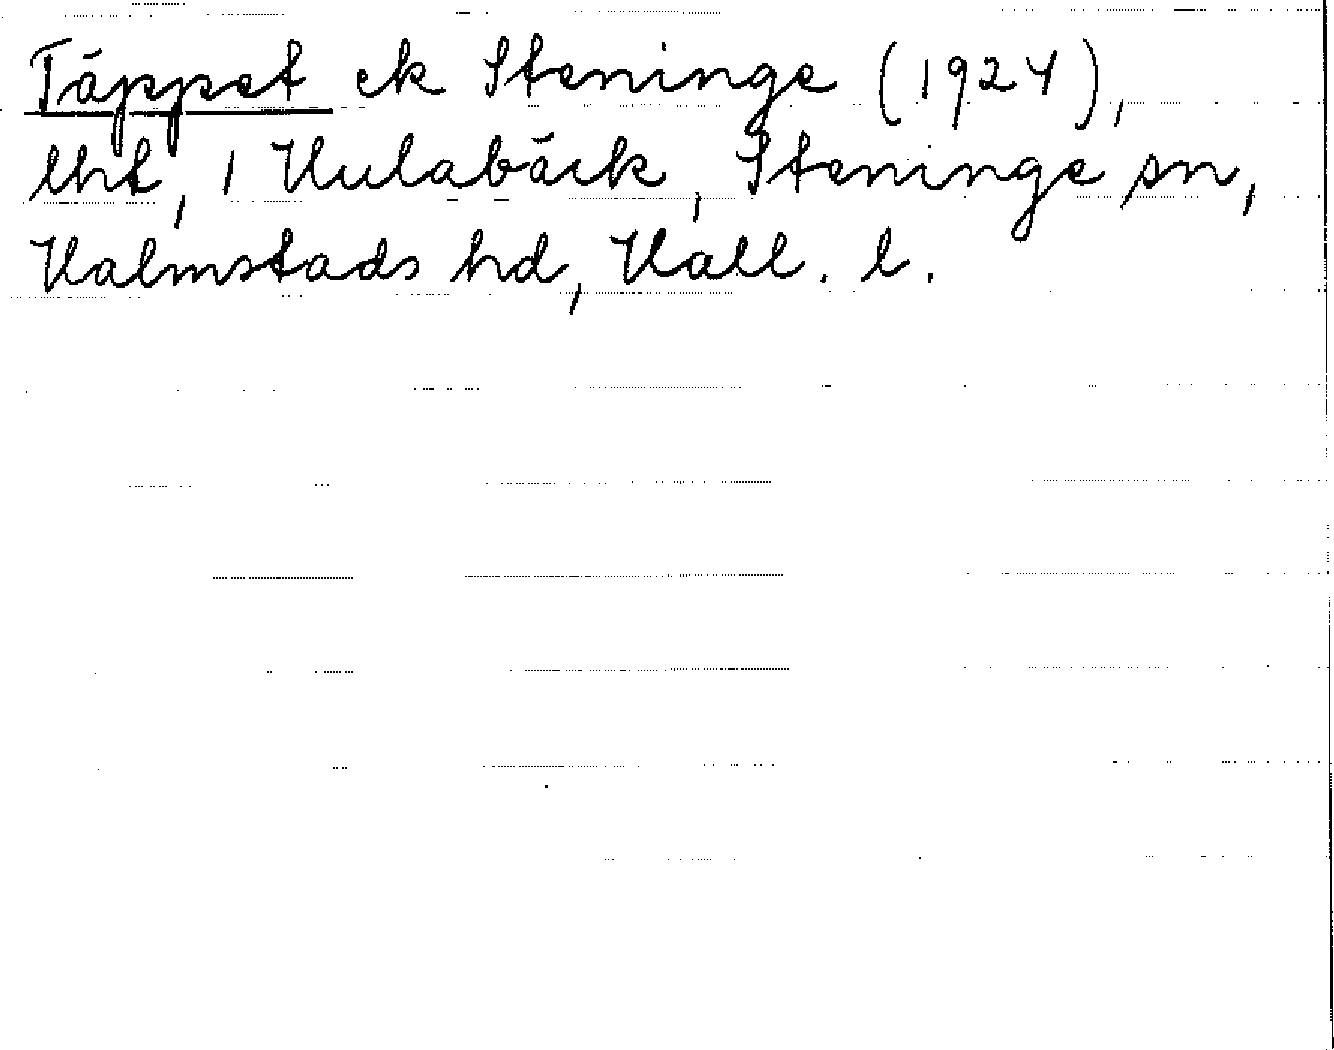 Täppet ek Steninge (1924),
lht, 1 Hulabäck, Steninge sn,
Halmstads hd, Hall. l.